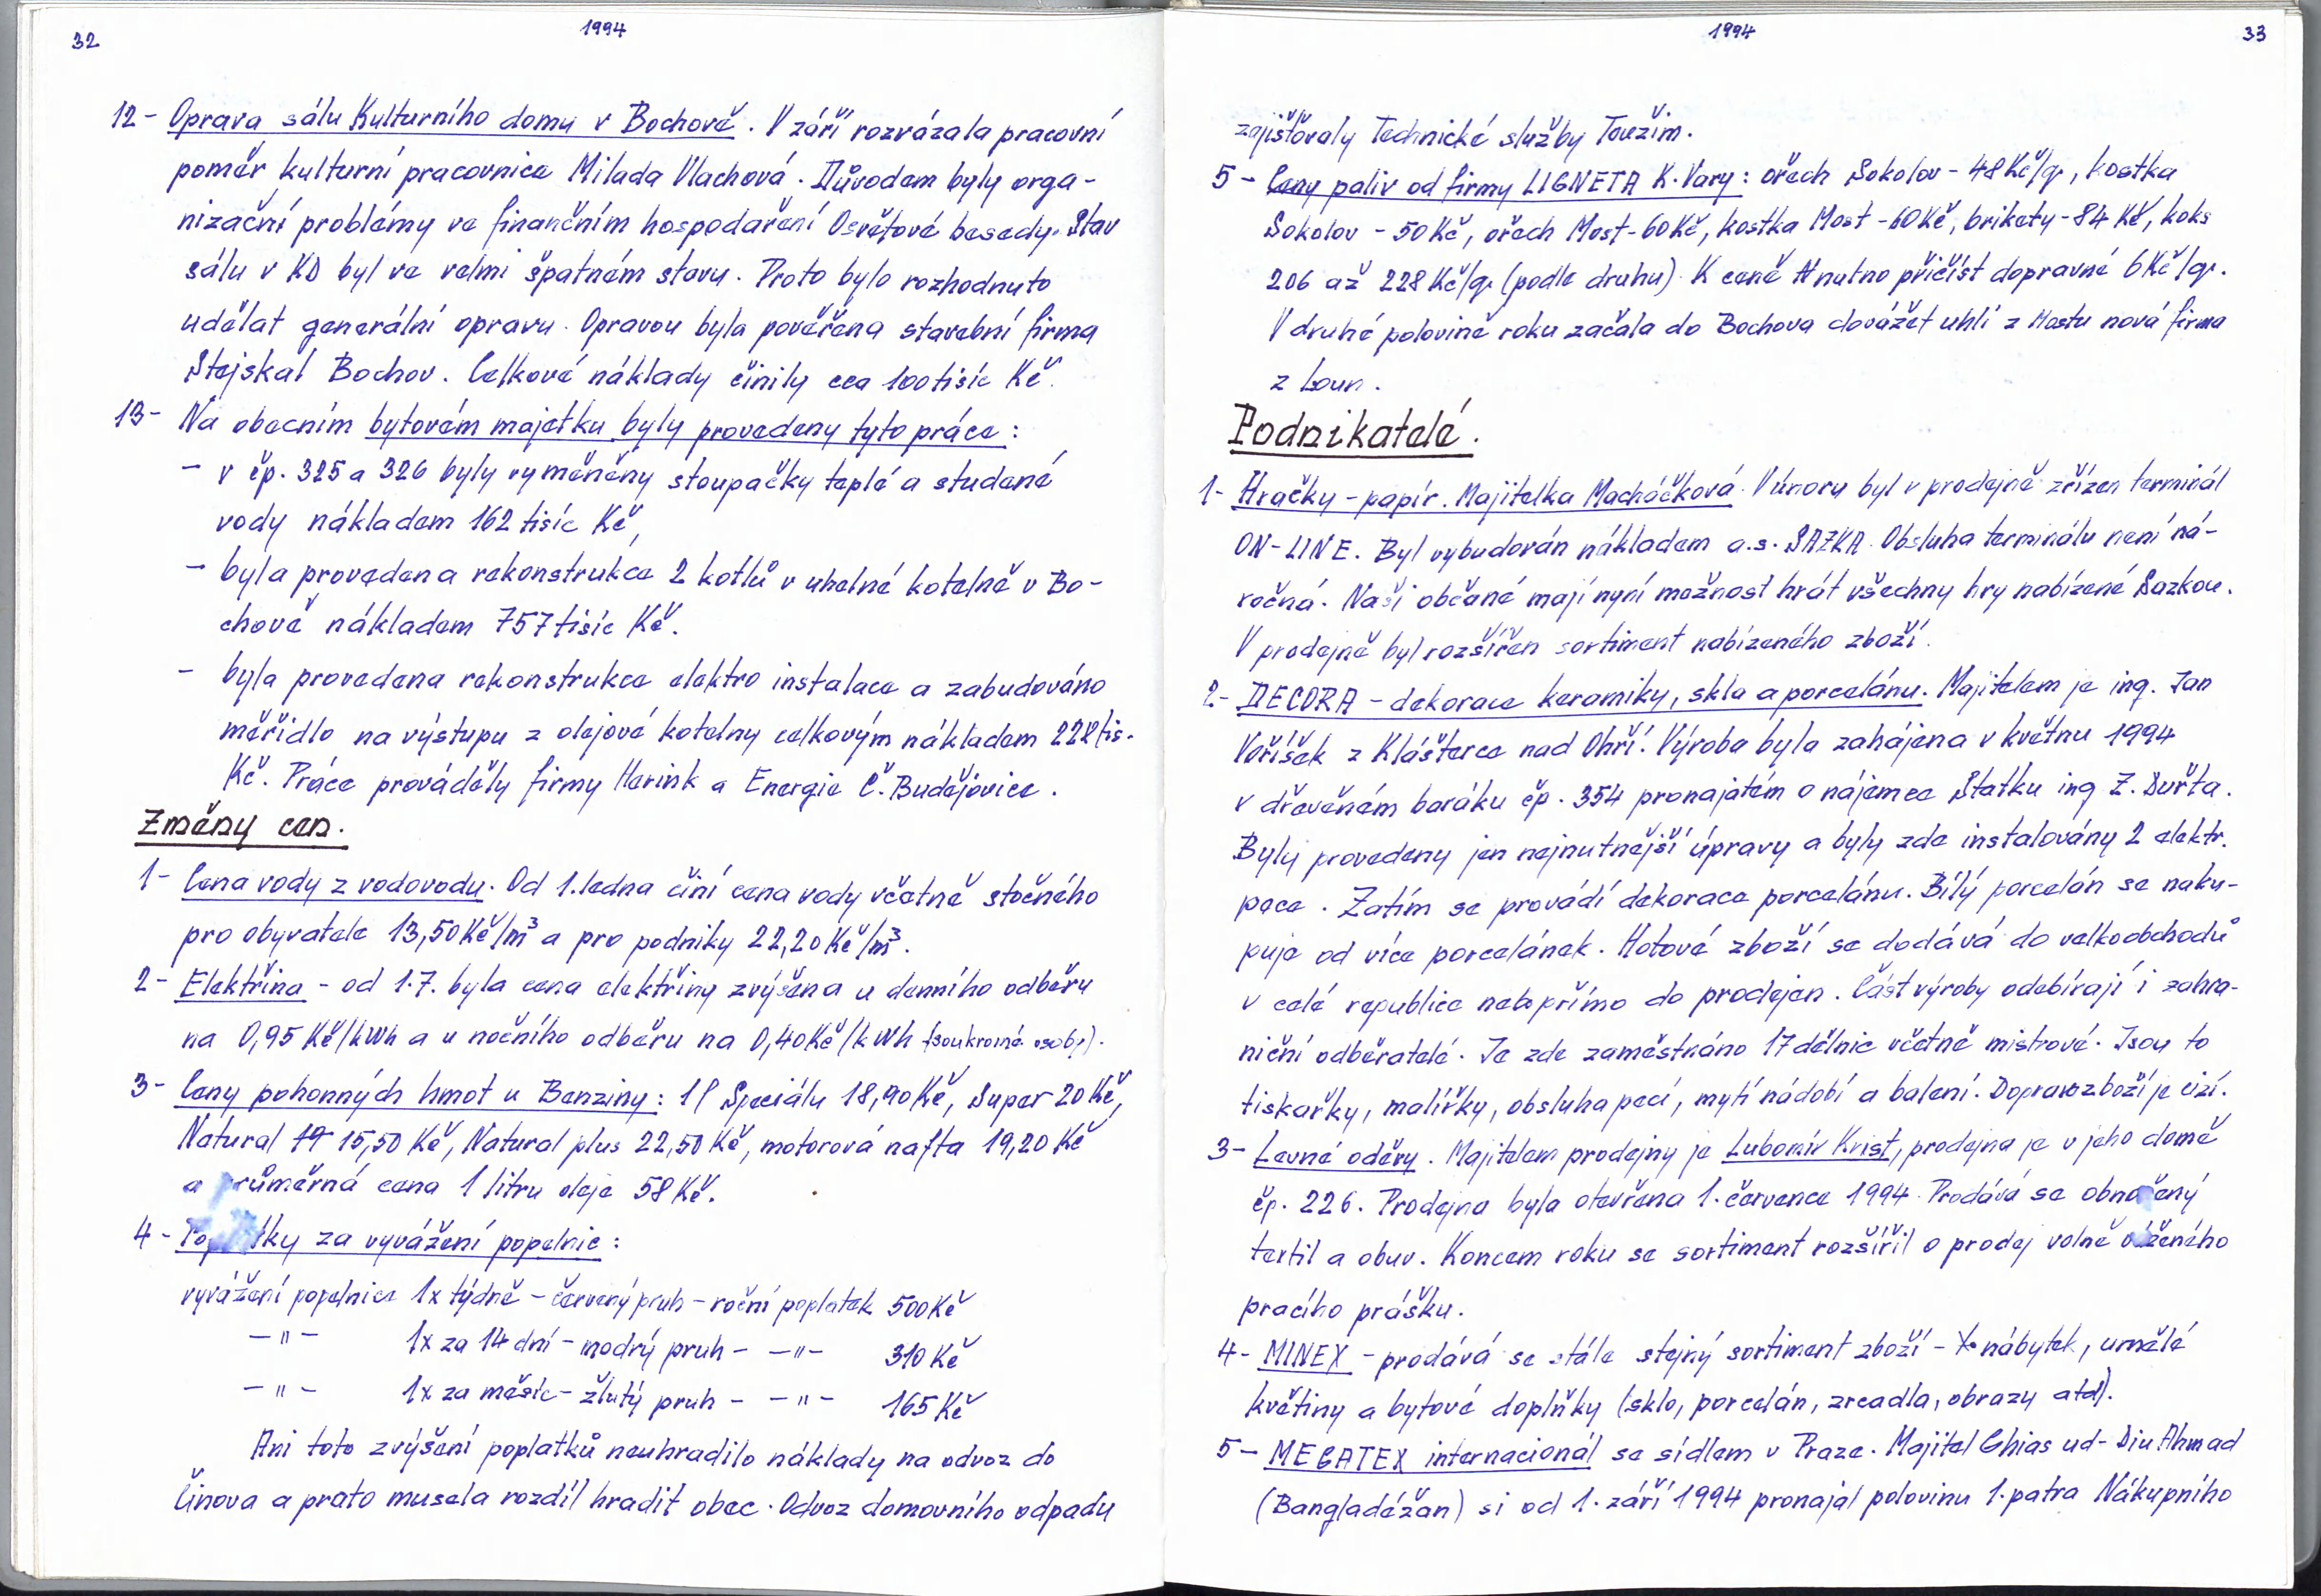 32
1994
12 - Oprava sálu Kulturního domu v Bochově. V září rozvázala pracovní
poměr kulturní pracovnice Milada Vlachová. Důvodem byly orga-
nizační problémy ve finančním hospodaření Osvětové besedy. Stav
sálu v KD byl ve velmi špatném stavu. Proto bylo rozhodnuto
udělat generální opravu. Opravou byla pověřena stavební firma
Stejskal Bochov. Celkové náklady činily cca 100 tisíc Kč.
13 - Na obecním bytovém majetku byly provedeny tyto práce:
- v čp. 325 a 326 byly vyměněny stoupačky teplé a studené
vody nákladem 162 tisíc Kč,
- byla provedena rekonstrukce 2 kotlů v uhelné kotelně v Bo-
chově nákladem 757 tisíc Kč.
- byla provedena rekonstrukce elektro instalace a zabudováno
měřidlo na výstupu z olejové kotelny celkovým nákladem 228 tis.
Kč. Práce prováděly firmy Herink a Energie Č. Budějovice.
Změny cen.
1 - Cena vody z vodovodu. Od 1. ledna činí cena vody včetně stočného
pro obyvatele 13,50 Kč/m³ a pro podniky 22,20 Kč/m³.
2 - Elektřina - od 1.7. byla cena elektřiny zvýšena u denního odběru
na 0,95 Kč/kWh a u nočního odběru na 0,40 Kč/kWh (soukromé osoby).
3 - Ceny pohonných hmot u Benziny: 1 l Speciálu 18,90 Kč, Super 20 Kč,
Natural 15,50 Kč, Natural plus 22,50 Kč, motorová nafta 19,20 Kč
a průměrná cena 1 litru oleje 58 Kč.
4 - Poplatky za vyvážení popelnic:
vyvážení popelnice 1x týdně - červený pruh - roční poplatek 500 Kč
- " - 1x za 14 dní - modrý pruh - - " - 310 Kč
- " - 1x za měsíc - žlutý pruh - - " - 165 Kč
Ani toto zvýšení poplatků neuhradilo náklady na odvoz do
Činova a proto musela rozdíl hradit obec. Odvoz domovního odpadu
1994
33
zajišťovaly Technické služby Toužim.
5 - Ceny paliv od firmy LIGNETA K. Vary: ořech Sokolov - 48 Kč/q, kostka
Sokolov - 50 Kč, ořech Most - 60 Kč, kostka Most - 60 Kč, brikety - 84 Kč, koks
206 až 228 Kč/q (podle druhu). K ceně nutno přičíst dopravné 6 Kč/q.
V druhé polovině roku začala do Bochova dovážet uhlí z Mostu nová firma
z Loun.
Podnikatelé.
1 - Hračky - papír. Majitelka Macháčková. V únoru byl v prodejně zřízen terminál
ON-LINE. Byl vybudován nákladem a.s. SAZKA. Obsluha terminálu není ná-
ročná. Naši občané mají nyní možnost hrát všechny hry nabízené Sazkou.
V prodejně byl rozšířen sortiment nabízeného zboží.
2 - DECORA - dekorace keramiky, skla a porcelánu. Majitelem je ing. Jan
Voříšek z Klášterce nad Ohří. Výroba byla zahájena v květnu 1994
v dřevěném baráku čp. 354 pronajatém o nájemce Statku ing Z. Durťa.
Byly provedeny jen nejnutnější úpravy a byly zde instalovány 2 elektr.
pece. Zatím se provádí dekorace porcelánu. Bílý porcelán se naku-
puje od více porcelánek. Hotové zboží se dodává do velkoobchodů
v celé republice nebo přímo do prodejen. Část výroby odebírají i zahra-
niční odběratelé. Je zde zaměstnáno 17 dělnic včetně mistrové. Jsou to
tiskařky, malířky, obsluha pecí, mytí nádobí a balení. Doprava zboží je cizí.
3 - Levné oděvy. Majitelem prodejny je Lubomír Krist, prodejna je v jeho domě
čp. 226. Prodejna byla otevřena 1. července 1994. Prodává se obnošený
textil a obuv. Koncem roku se sortiment rozšířil o prodej volně váženého
pracího prášku.
4 - MINEX - prodává se stále stejný sortiment zboží - nábytek, umělé
květiny a bytové doplňky (sklo, porcelán, zrcadla, obrazy atd).
5 - MEGATEX internacionál se sídlem v Praze. Majitel Ghias ud-Diu Ahmad
(Bangladéžan) si od 1. září 1994 pronajal polovinu 1. patra Nákupního